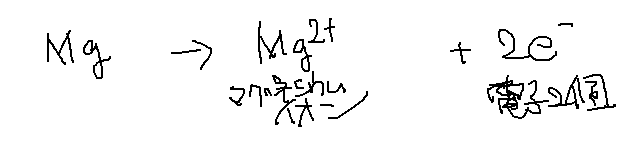 Mg → Mg²⁺ + 2e⁻
マグネシウム
イオン 電子2個